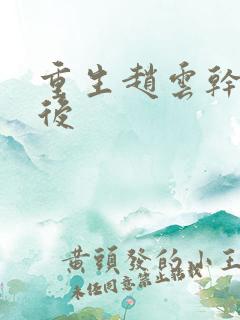 重生趙雲幹
後
黃頭發的小王
未经同意禁止转载